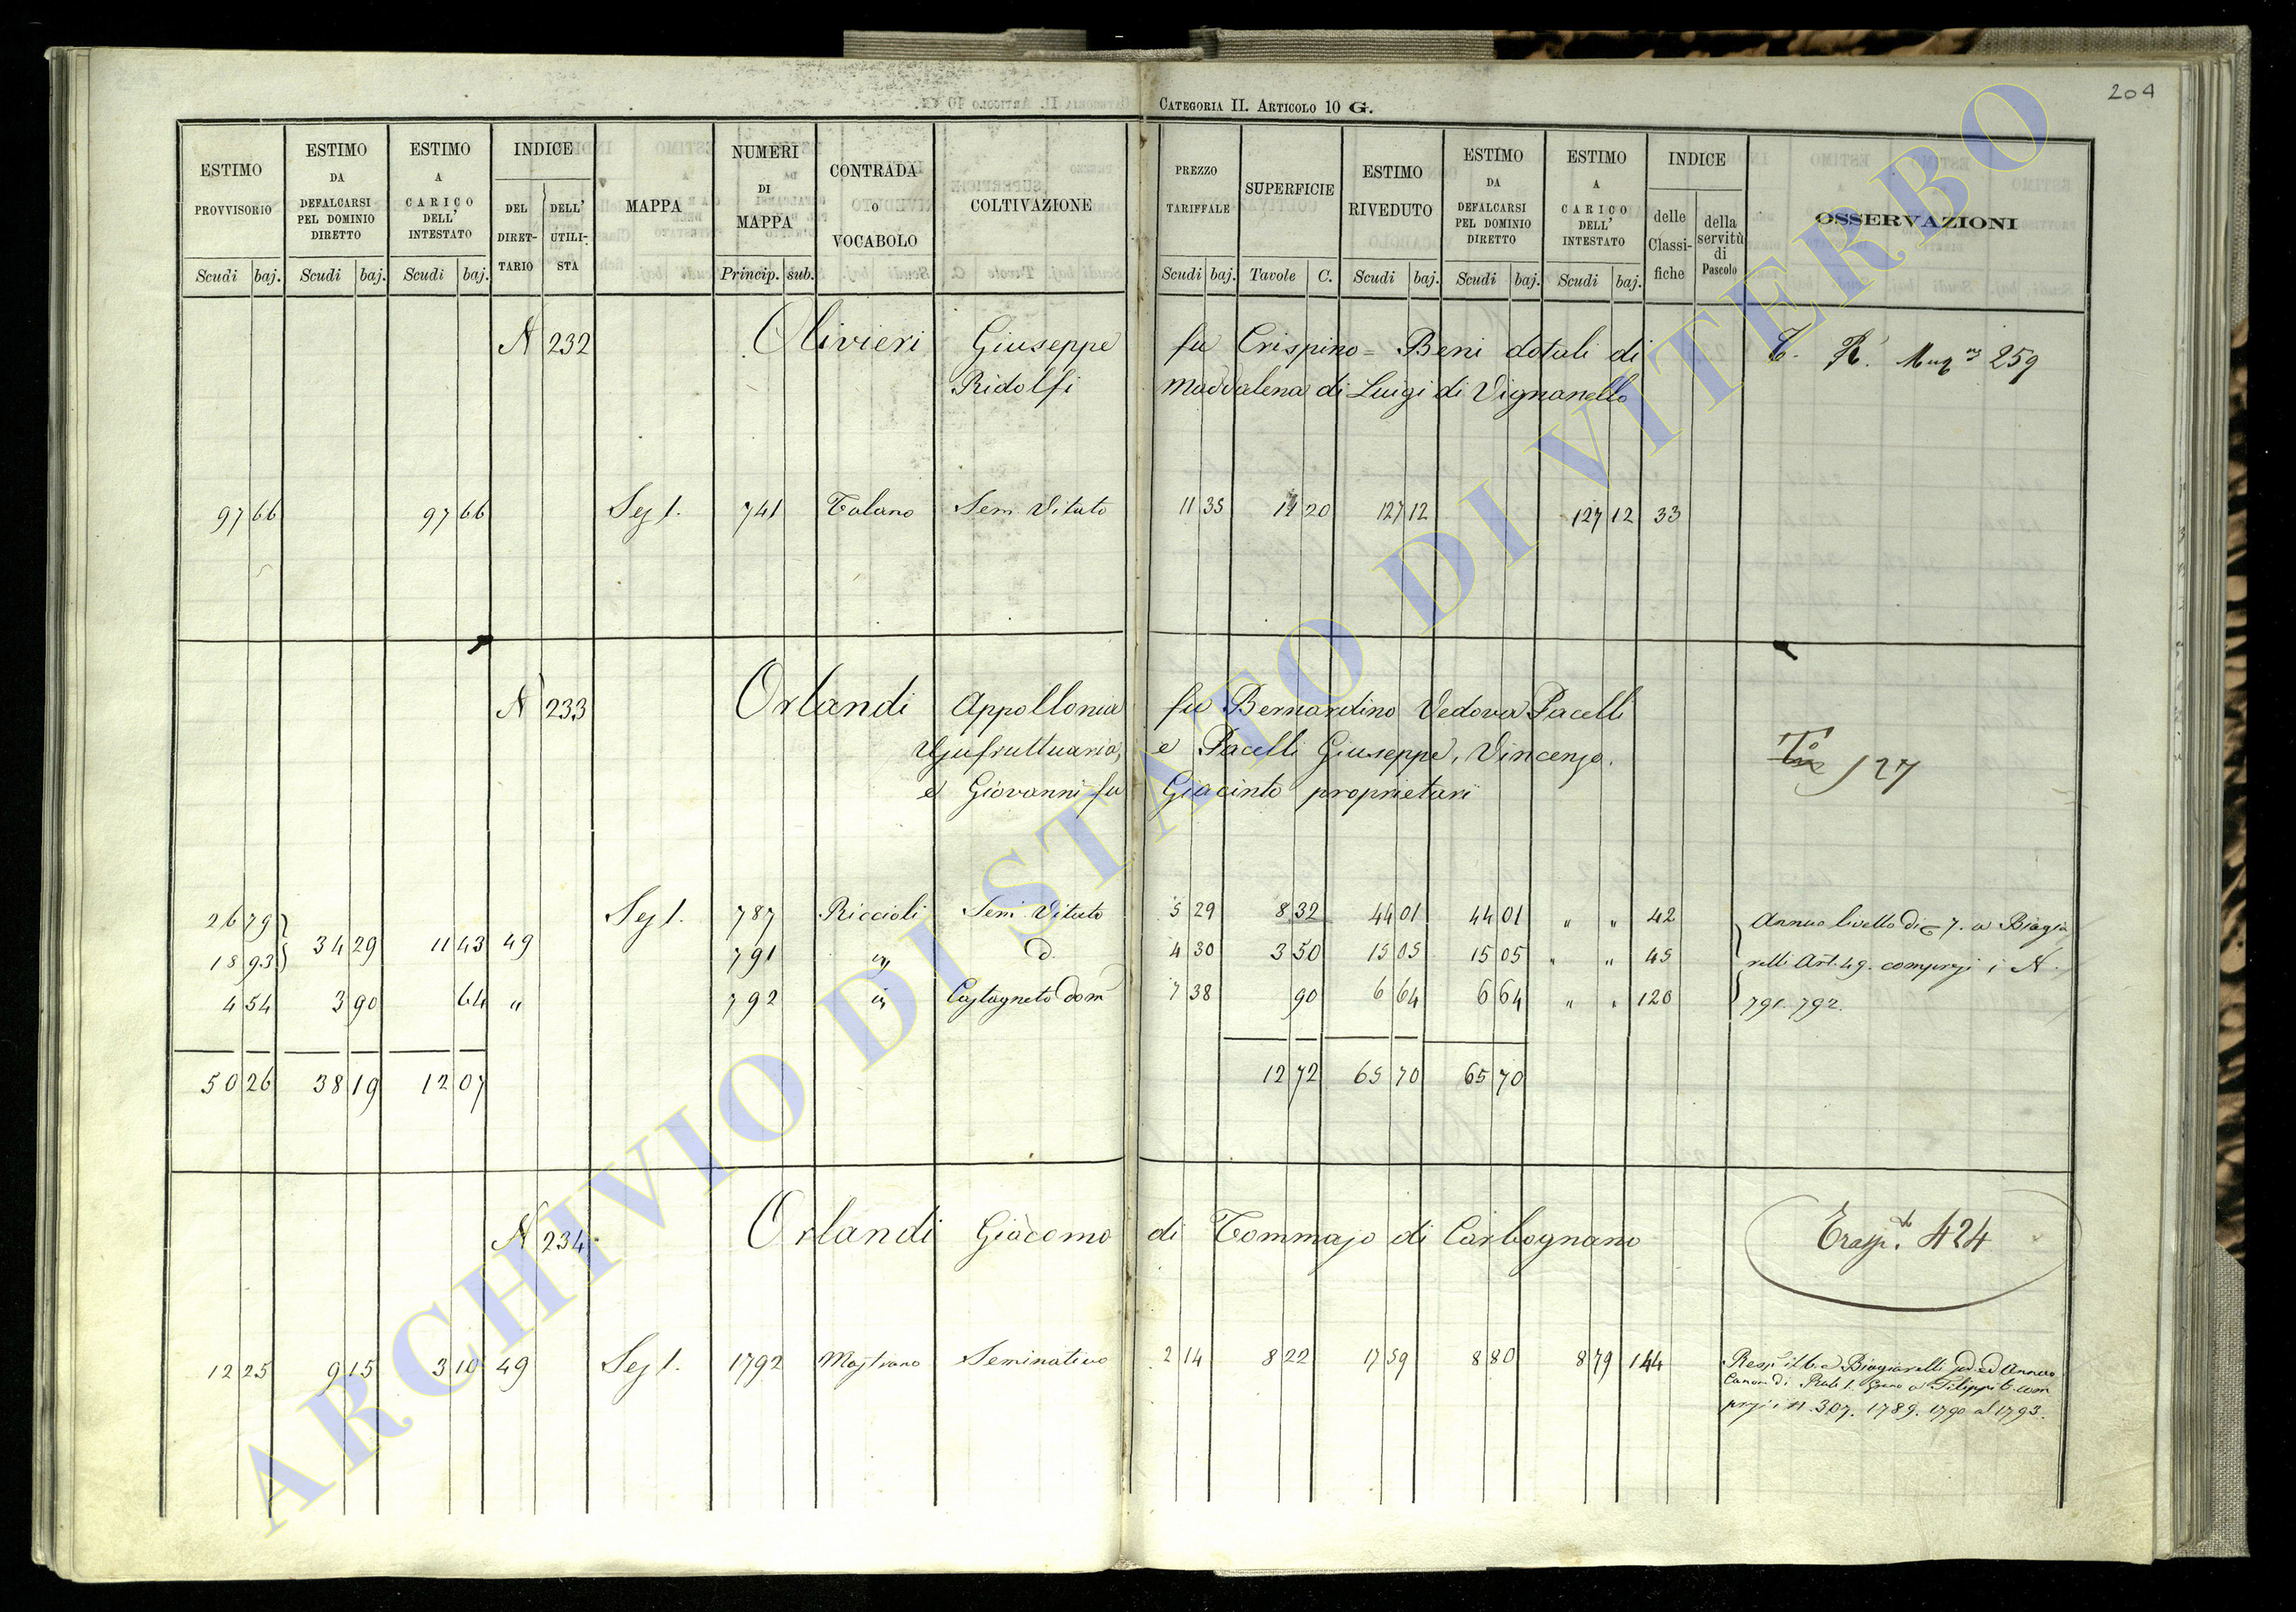 204
CATEGORIA II. ARTICOLO 10 G.
ESTIMO PROVVISORIO Scudi baj.
ESTIMO DA DEFALCARSI PEL DOMINIO DIRETTO Scudi baj.
ESTIMO A CARICO DELL' INTESTATO Scudi baj.
INDICE DEL DIRETTARIO DELL' UTILISTA
MAPPA
NUMERI DI MAPPA Princip. sub.
CONTRADA O VOCABOLO
COLTIVAZIONE
PREZZO TARIFFALE Scudi baj.
SUPERFICIE Tavole C.
ESTIMO RIVEDUTO Scudi baj.
ESTIMO DA DEFALCARSI PEL DOMINIO DIRETTO Scudi baj.
ESTIMO A CARICO DELL' INTESTATO Scudi baj.
INDICE delle Classifiche della servitù di Pascolo
OSSERVAZIONI
N 232 Olivieri Giuseppe fu Crispino = Beni dotali di 259
Ridolfi Maddalena di Luigi di Vignanello
97 66 97 66 Sez 1. 741 Talano Sem Vitato 11 35 20 127 12 127 12 33
N 233 Orlandi Appollonia fu Bernardino Vedova Pacelli
Usufruttuaria, e Pacelli Giuseppe, Vincenzo, 127
e Giovanni fu Giacinto proprietari
26 79 Sez 1. 787 Riccioli Sem. Vitato 5 29 8 32 44 01 44 01 " " 42 Annuo livello di 7. a Biagia
18 93 34 29 11 43 49 791 d. 4 30 3 50 15 05 15 05 " " 45 relli Art. 49. compresi i N.
4 54 3 90 64 " 792 Castagneto dom 7 38 90 6 64 6 64 " " 120 791. 792.
50 26 38 19 12 07 12 72 65 70 65 70
N 234 Orlandi Giacomo di Tommaso di Carbognano Trasp. 424
12 25 9 15 3 10 49 Sez 1. 1792 Mastrano Seminativo 2 14 8 22 17 59 8 80 8 79 144 Biagiarelli ed Annuo
Canon di 1. Grano a Filippi com
presi i n. 307. 1789. 1790 al 1793.
ARCHIVIO DI STATO DI VITERBO